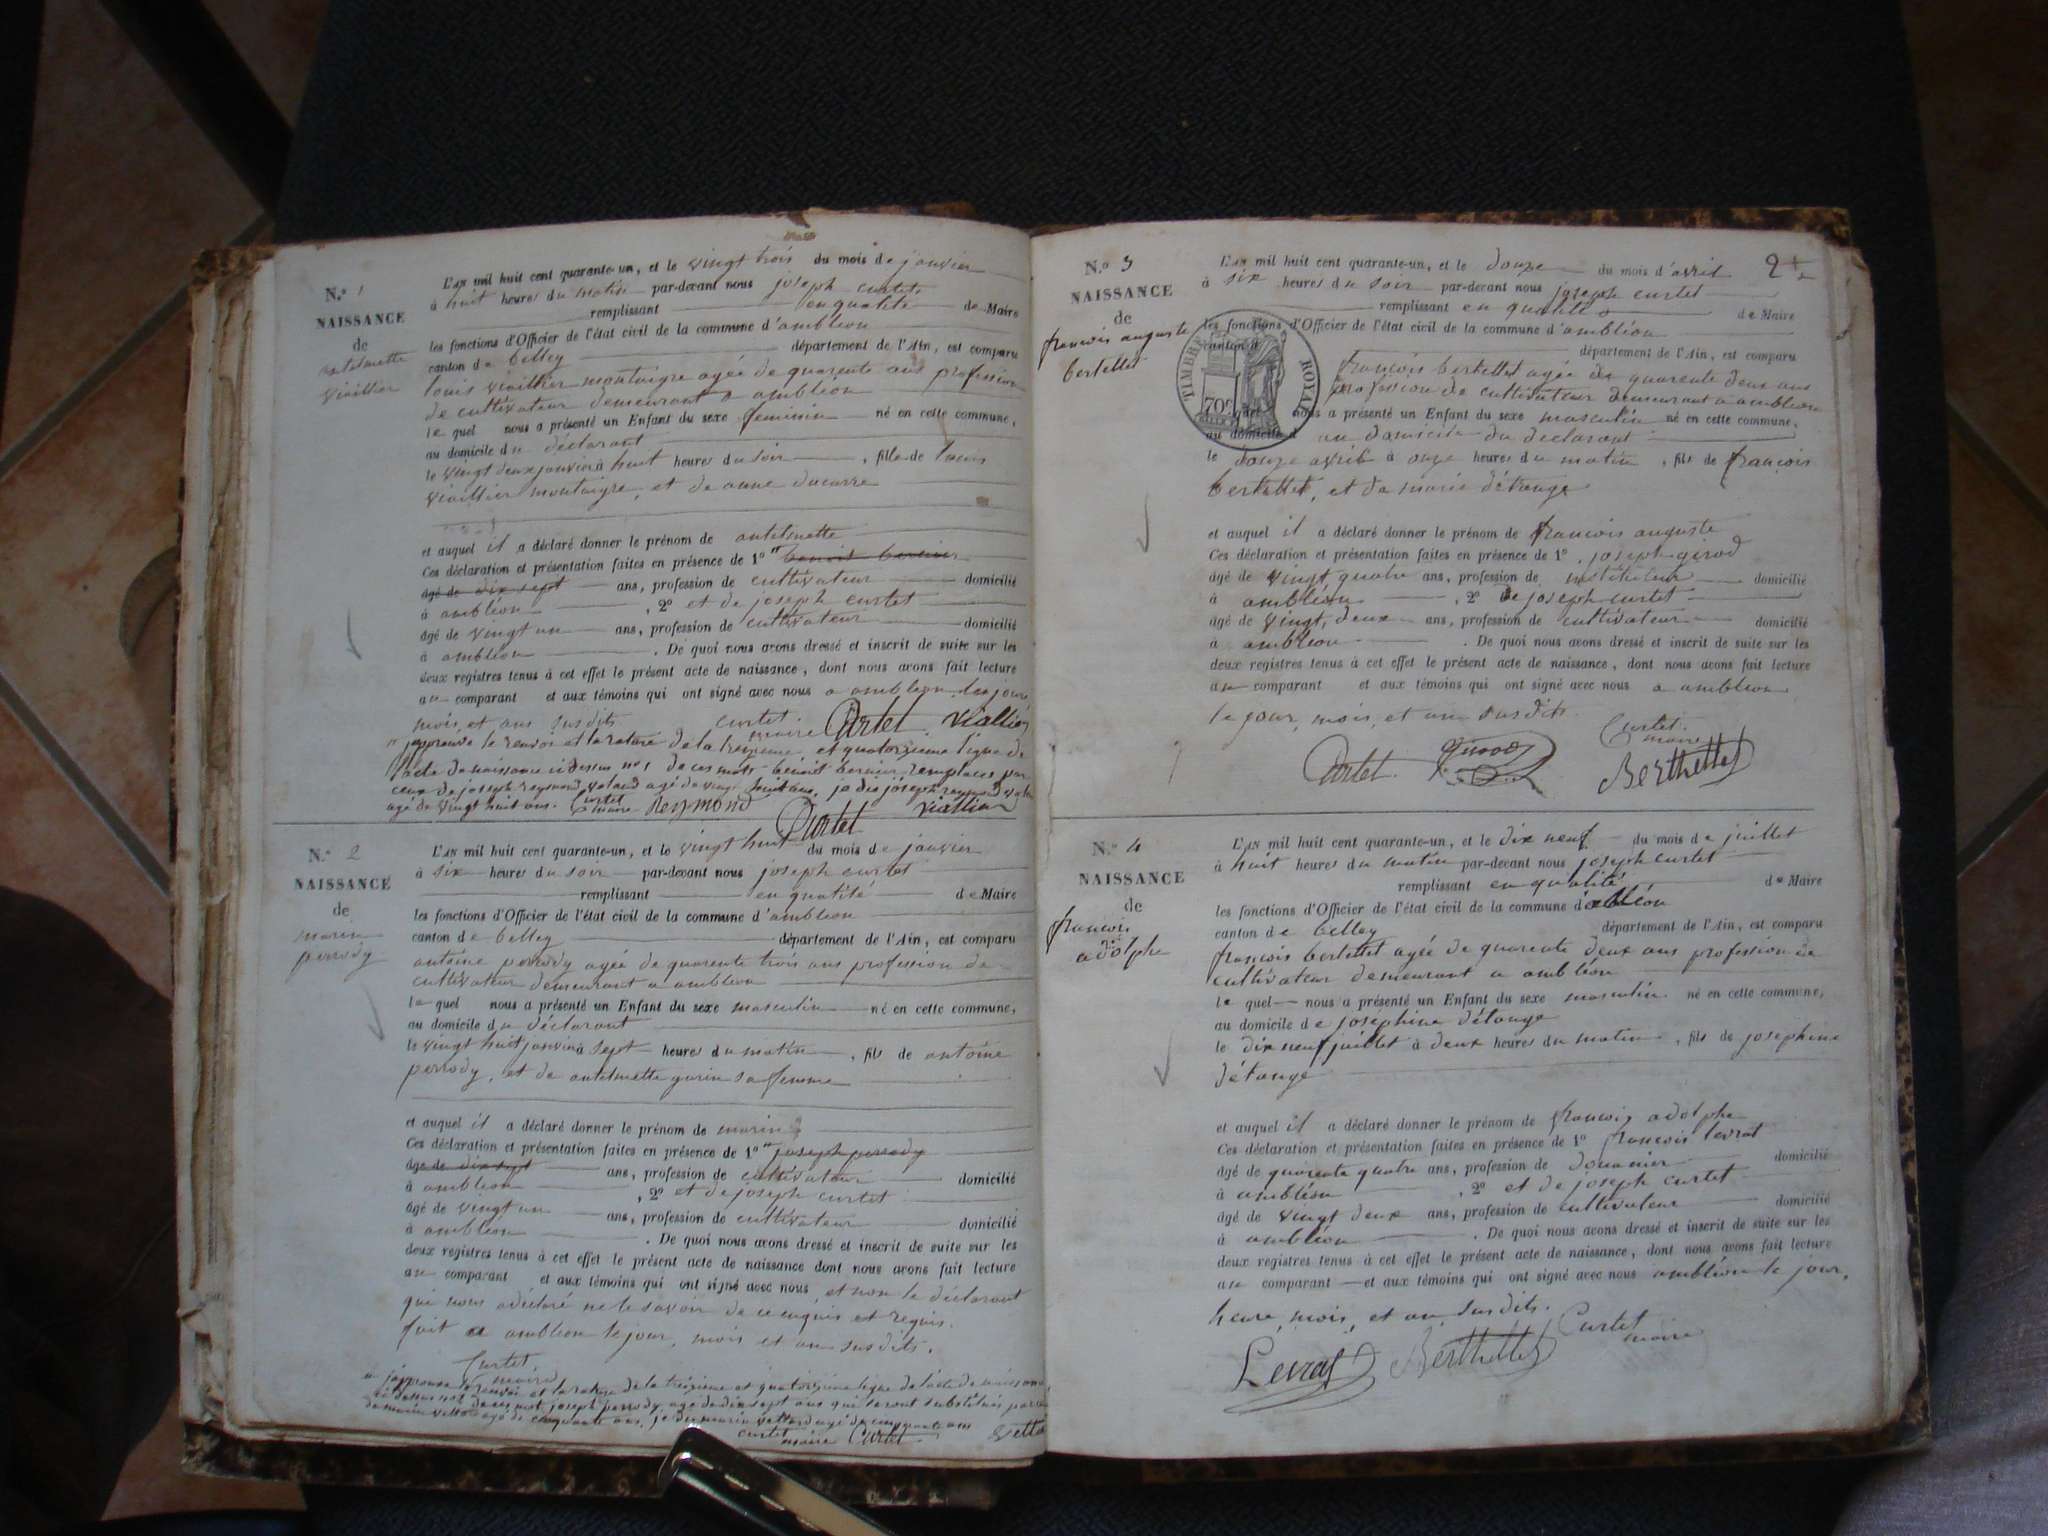 N.º 1
NAISSANCE
de
antelmette
viallier
L'AN mil huit cent quarante-un, et le vingt trois du mois de janvier
à huit heures du matin par-devant nous joseph curtet
remplissant en qualité de Maire
les fonctions d'Officier de l'état civil de la commune d'ambleon
canton de belley département de l'Ain, est comparu
louis viallier montaigre agée de quarente ans profession
de cultivateur demeurant a ambléon
le quel nous a présenté un Enfant du sexe feminin né en cette commune,
au domicile du déclarant
le vingt deux janvier à huit heures du soir, fille de louis
viallier montaigre, et de anne ducarre
et auquel il a déclaré donner le prénom de antelmette
Ces déclaration et présentation faites en présence de 1º benoit bernier
âgé de dix sept ans, profession de cultivateur domicilié
à ambléon, 2º et de joseph curtet
âgé de vingt un ans, profession de cultivateur domicilié
à ambléon. De quoi nous avons dressé et inscrit de suite sur les
deux registres tenus à cet effet le présent acte de naissance, dont nous avons fait lecture
au comparant et aux témoins qui ont signé avec nous a ambleon les jour,
mois et ans susdits curtet. maire Curtet viallier
" j'approuve le renvoi et la rature de la treizieme et quatorzieme ligne de
l'acte de naissance ci dessus nº 1 de ces mots benoit bernier remplacés par
ceux de joseph reymond agé de vingt huit ans, je dis joseph reymond
agé de vingt huit ans. Curtet maire Reymond Curtet viallier
N.º 2
NAISSANCE
de
marin
perrody
L'AN mil huit cent quarante-un, et le vingt huit du mois de janvier
à six heures du soir par-devant nous joseph curtet
remplissant en qualité de Maire
les fonctions d'Officier de l'état civil de la commune d'ambleon
canton de belley département de l'Ain, est comparu
antoine perrody agée de quarente trois ans profession de
cultivateur demeurant a ambleon
le quel nous a présenté un Enfant du sexe masculin né en cette commune,
au domicile du déclarant
le vingt huit janvier à sept heures du matin, fils de antoine
perrody, et de antelmette garin sa femme
et auquel il a déclaré donner le prénom de marin
Ces déclaration et présentation faites en présence de 1º joseph perrody
âgé de dix sept ans, profession de cultivateur domicilié
à ambleon, 2º et de joseph curtet
âgé de vingt un ans, profession de cultivateur domicilié
à ambléon. De quoi nous avons dressé et inscrit de suite sur les
deux registres tenus à cet effet le présent acte de naissance dont nous avons fait lecture
au comparant et aux témoins qui ont signé avec nous et non le déclarant
qui nous a déclaré ne le savoir de ce enquis et requis.
fait a ambleon le jour, mois et an susdits.
Curtet maire
" j'approuve le renvoi et la rature de la treizieme et quatorzieme ligne de l'acte de naissance
ci dessus nº 2 de ces mot joseph perrody agé de dix sept ans qui seront substitués par ceux
de marin agé de cinquante ans, je dis marin agé de cinquante ans
curtet maire Curtet
N.º 3
NAISSANCE
de
francois auguste
bertellet
2
L'AN mil huit cent quarante-un, et le douze du mois d'avril
à six heures du soir par-devant nous joseph curtet
remplissant en qualité de Maire
les fonctions d'Officier de l'état civil de la commune d'ambléon
canton d département de l'Ain, est comparu
TIMBRE ROYAL
70c
françois bertellet agée de quarente deux ans
profession de cultivateur demeurant a ambleon
quel nous a présenté un Enfant du sexe masculin né en cette commune,
au domicile d au domicile du declarant
le douze avril à onze heures du matin, fils de françois
bertellet, et de marie détange
et auquel il a déclaré donner le prénom de francois auguste
Ces déclaration et présentation faites en présence de 1º joseph girod
âgé de vingt quatre ans, profession de instituteur domicilié
à ambléon, 2º de joseph curtet
âgé de vingt deux ans, profession de cultivateur domicilié
à ambleon. De quoi nous avons dressé et inscrit de suite sur les
deux registres tenus à cet effet le présent acte de naissance, dont nous avons fait lecture
au comparant et aux témoins qui ont signé avec nous a ambleon
le jour, mois, et an susdits.
Curtet maire
Curtet Girod Berthellet
N.º 4
NAISSANCE
de
francois
adolphe
L'AN mil huit cent quarante-un, et le dix neuf du mois de juillet
à huit heures du matin par-devant nous joseph curtet
remplissant en qualité de Maire
les fonctions d'Officier de l'état civil de la commune d'ambléon
canton de belley département de l'Ain, est comparu
françois bertellet agée de quarente deux ans profession de
cultivateur demeurant a ambléon
le quel nous a présenté un Enfant du sexe masculin né en cette commune,
au domicile de joséphine détange
le dix neuf juillet à deux heures du matin, fils de josephine
détange
et auquel il a déclaré donner le prénom de françois adolphe
Ces déclaration et présentation faites en présence de 1º francois levrat
âgé de quarente quatre ans, profession de douanier domicilié
à ambléon, 2º et de joseph curtet
âgé de vingt deux ans, profession de cultivateur domicilié
à ambléon. De quoi nous avons dressé et inscrit de suite sur les
deux registres tenus à cet effet le présent acte de naissance, dont nous avons fait lecture
au comparant et aux témoins qui ont signé avec nous ambléon le jour,
heure, mois, et an susdits. Curtet maire
Levrat Berthellet